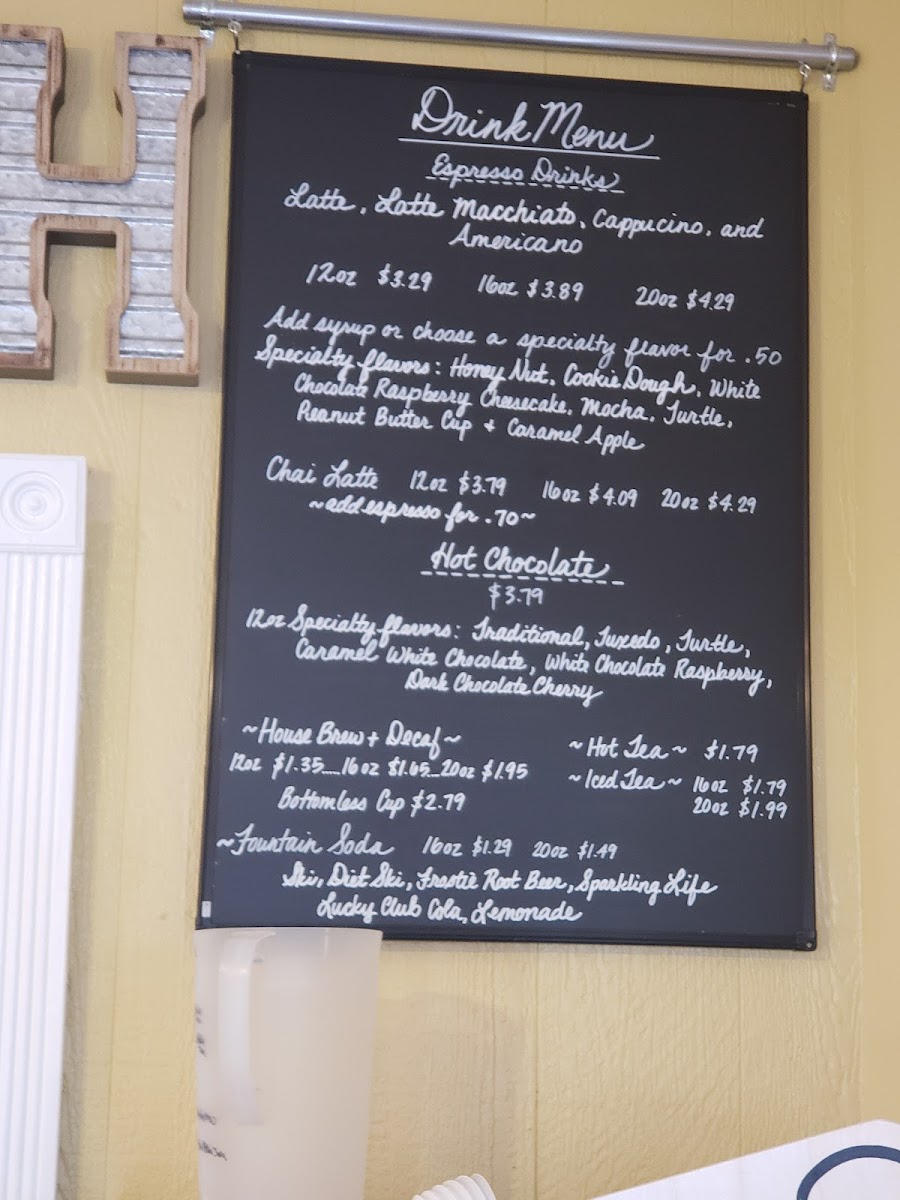 H
Drink Menu
Espresso Drinks
Latte, Latte Macchiato, Cappucino, and
Americano
12oz $3.29 16oz $3.89 20oz $4.29
Add syrup or choose a specialty flavor for .50
Specialty flavors: Honey Nut, Cookie Dough, White
Chocolate Raspberry Cheesecake, Mocha, Turtle,
Peanut Butter Cup + Caramel Apple
Chai Latte 12oz $3.79 16oz $4.09 20oz $4.29
~add espresso for .70~
Hot Chocolate
$3.79
12oz Specialty flavors: Traditional, Tuxedo, Turtle,
Caramel White Chocolate, White Chocolate Raspberry,
Dark Chocolate Cherry
~House Brew + Decaf~
12oz $1.35....16oz $1.65...20oz $1.95
Bottomless Cup $2.79
~Hot Tea~ $1.79
~Iced Tea~ 16oz $1.79
20oz $1.99
~Fountain Soda 16oz $1.29 20oz $1.49
Ski, Diet Ski, Frostie Root Beer, Sparkling Life
Lucky Club Cola, Lemonade